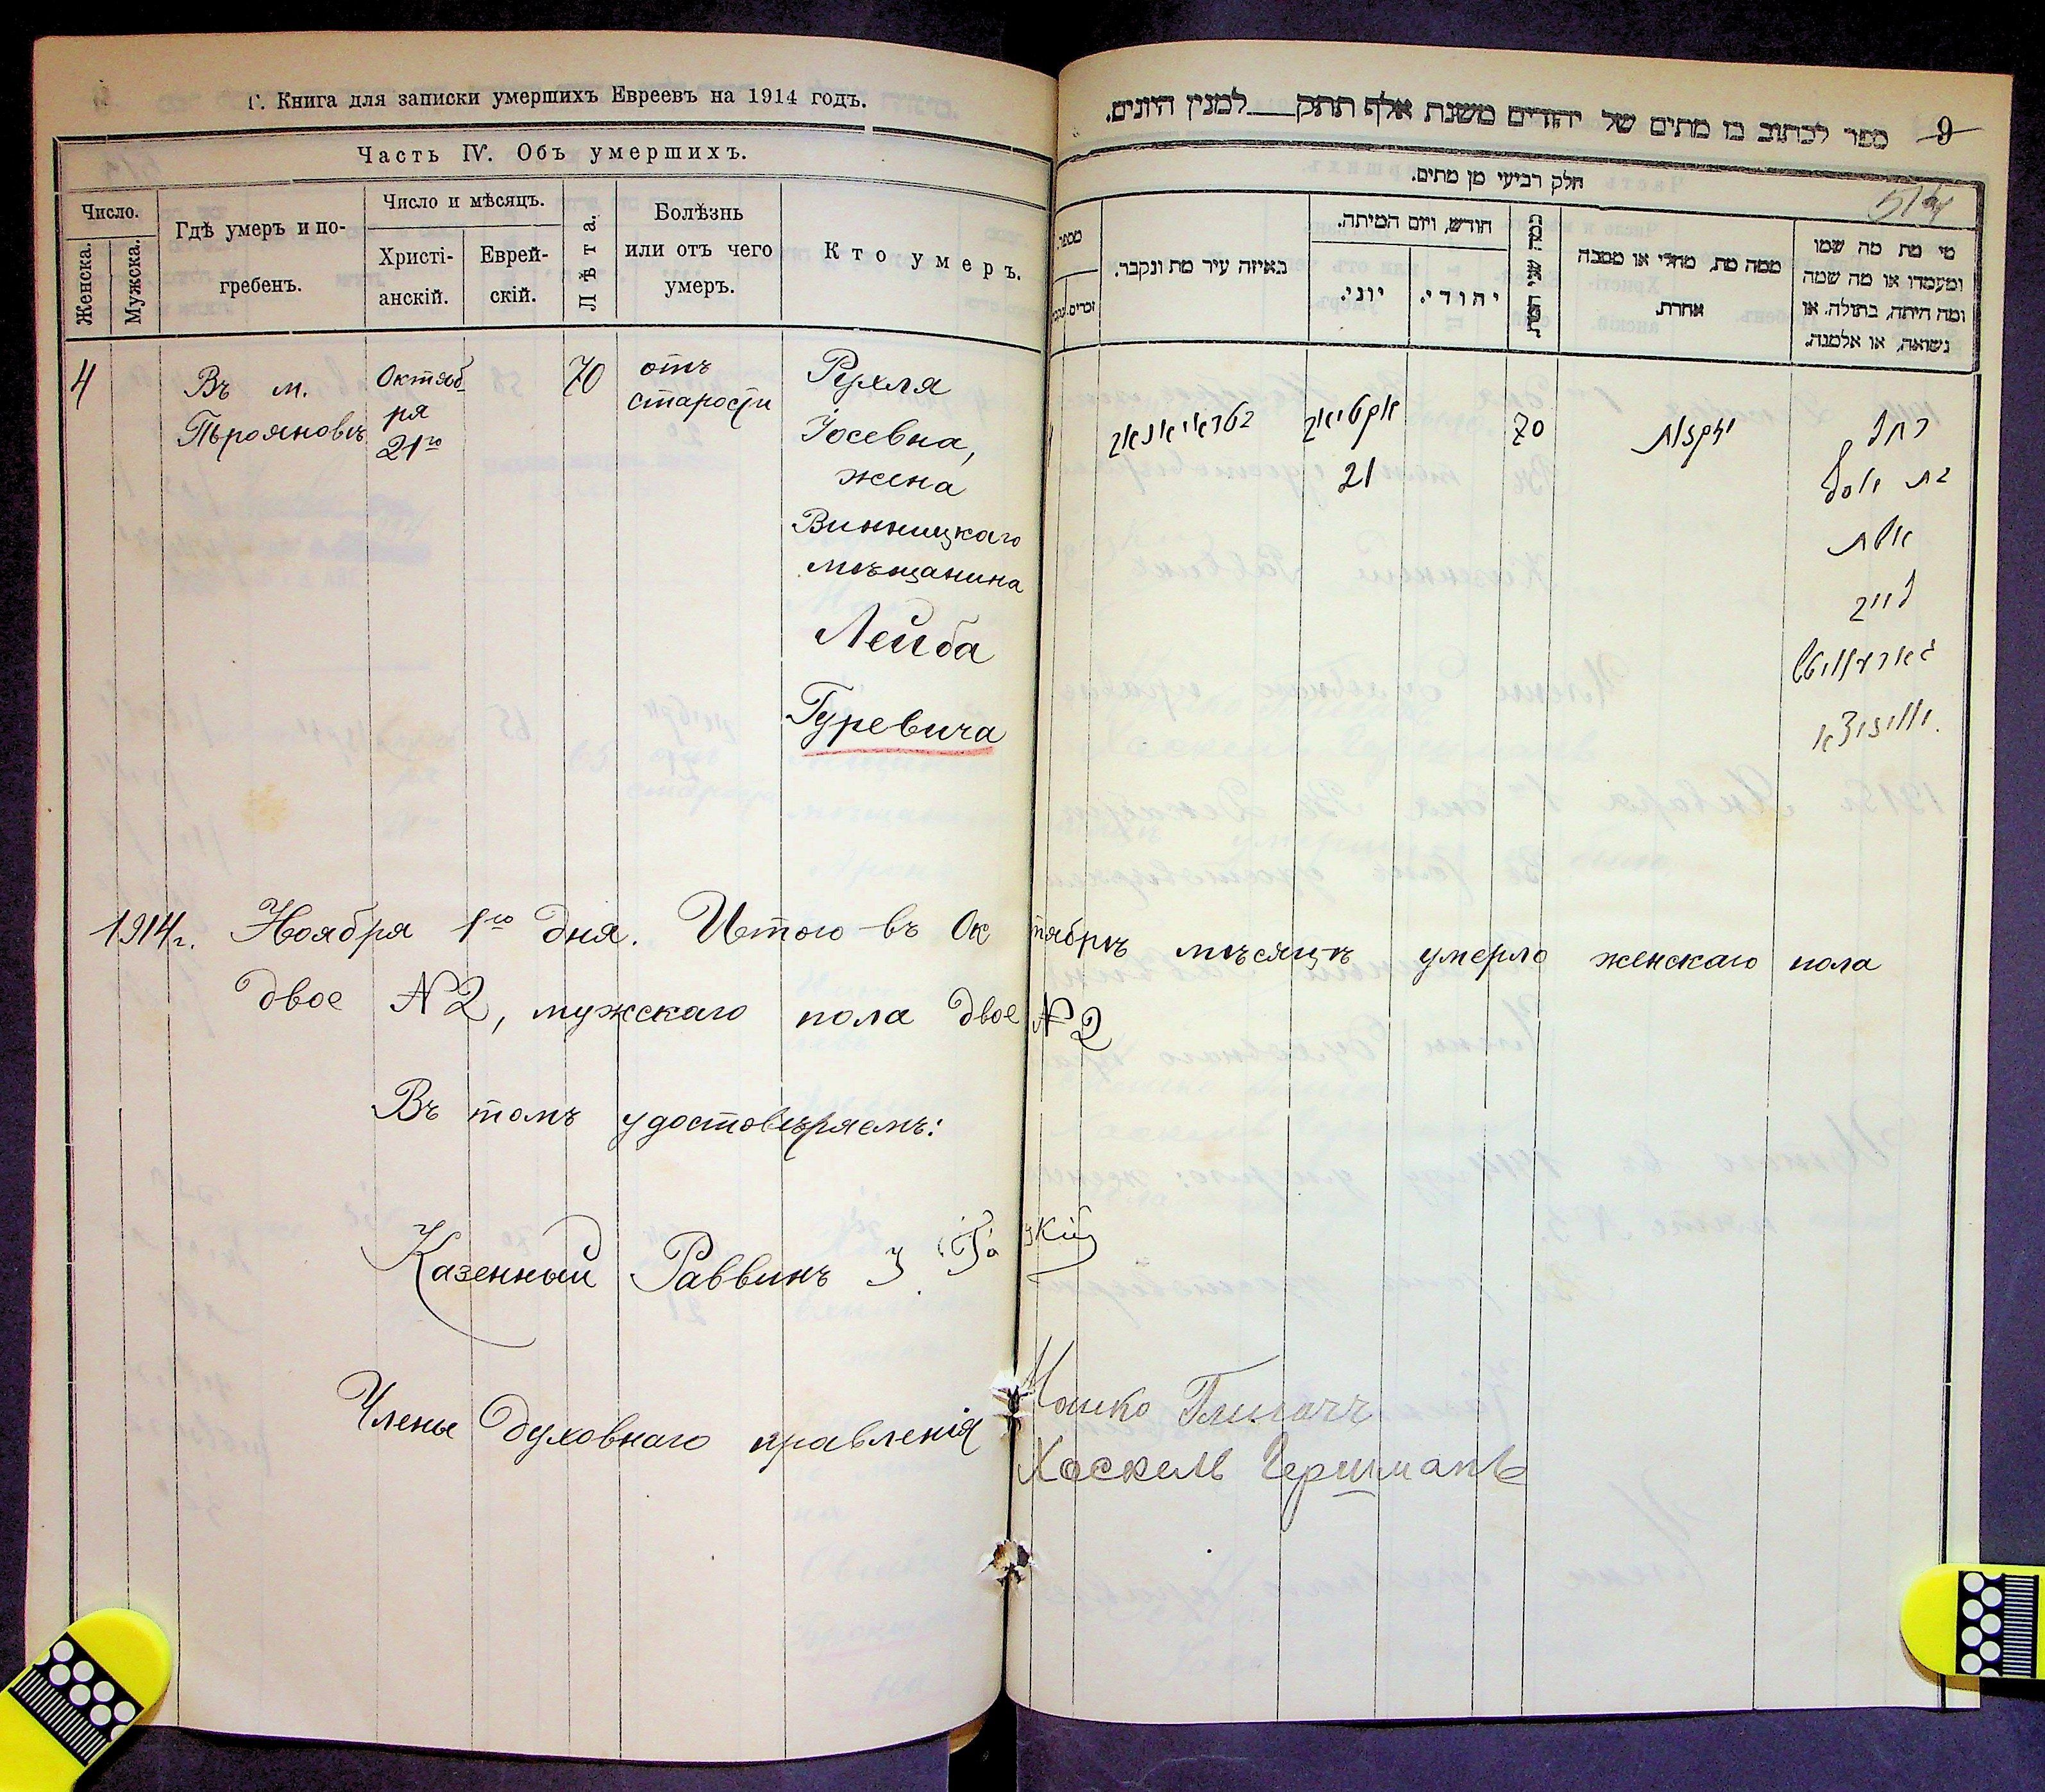 Г. Книга для записки умершихъ Евреевъ на 1914 годъ.
Часть IV. Объ умершихъ.
Число.
Женска.
Мужска.
Гдѣ умеръ и по-
гребенъ.
Число и мѣсяцъ.
Христі-
анскій.
Еврей-
скій.
Лѣта.
Болѣзнь
или отъ чего
умеръ.
Кто умеръ.
4
Въ м.
Октяб
ря
21го
70
отъ
старости
Рухля
Іосевна,
жена
Винницкаго
мѣщанина
Лейба
Гуревича
ספר לכתוב בו מתים של יהודים משנת אלף תתק למנין היונים.
9
חלק רביעי מן מתים.
מספר.
באיזה עיר מת ונקבר.
חודש, ויום המיתה.
יוני.
יהודי.
כמה שני חייו
ממה מת, מחלי או מסבה
אחרת.
מי מת מה שמו
ומעמדו או מה שמה
ומה היתה, בתולה, או
נשואה, או אלמנה.
אקטיאב
21
70
מזקנות
רחל
בת יוסף
אשת
לייב
1914г. Ноября 1го дня. Итого въ Октябрѣ мѣсяцѣ умерло женскаго пола
двое №2, мужскаго пола двое №2
Въ томъ удостовѣряемъ:
Казенный Раввинъ
Члены Духовнаго правленія
Мошко
Хаскель Гершманъ